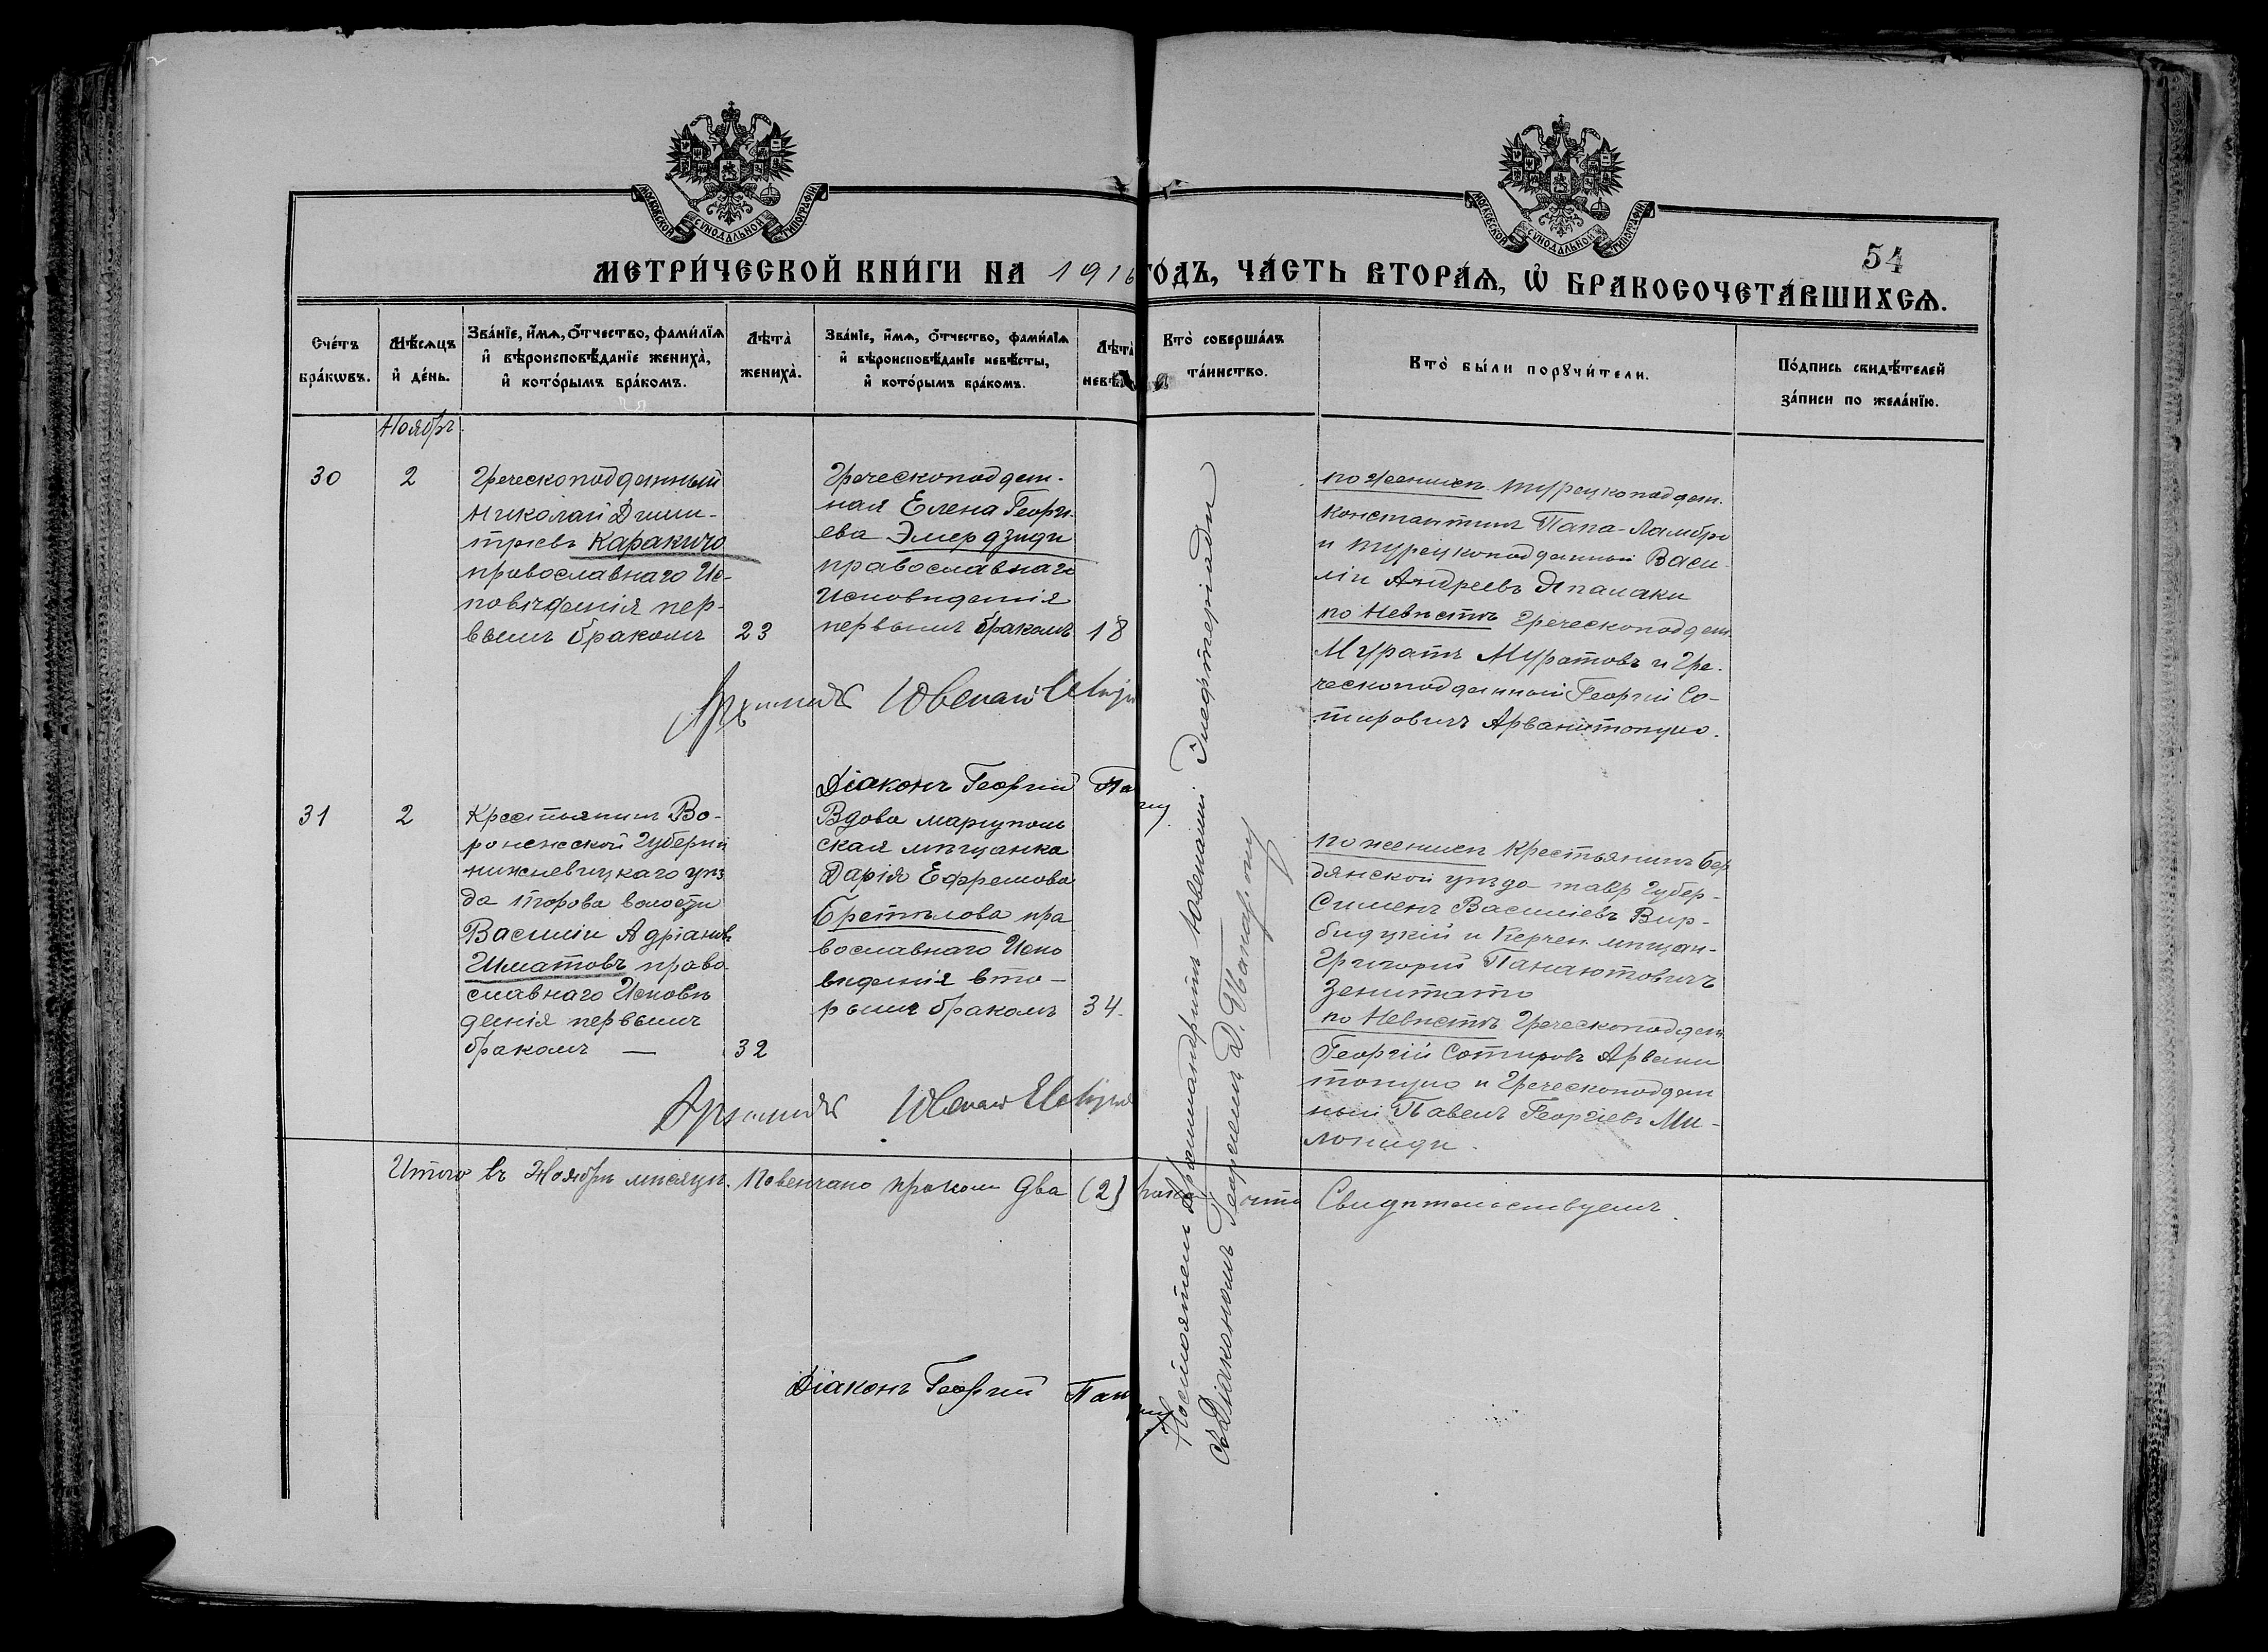 МОСКОВСКОЙ СѴНОДАЛЬНОЙ ТИПОГРАФІИ
МОСКОВСКОЙ СѴНОДАЛЬНОЙ ТИПОГРАФІИ
54
МЕТРИ́ЧЕСКОЙ КНИ́ГИ НА 1916 ГО́ДЪ, ЧА́СТЬ ВТОРА́Ѧ, Ѽ БРАКОСОЧЕТА́ВШИХСѦ.
Сче́тъ бра́кѡвъ.
Мѣ́сѧцъ и҆ де́нь.
Зва́нїе, и҆́мѧ, ѻ҆́тчество, фами́лїѧ
и҆ вѣроисповѣ́данїе жениха̀,
и҆ кото́рымъ бра́комъ.
Лѣта̀ жениха̀.
Зва́нїе, и҆́мѧ, ѻ҆́тчество, фами́лїѧ
и҆ вѣроисповѣ́данїе невѣ́сты,
и҆ кото́рымъ бра́комъ.
Лѣта̀
Кто̀ соверша́лъ
та́инство.
Кто̀ бы́ли порꙋчи́тели.
По́дпись свидѣ́телей
за́писи по жела́нїю.
Ноябрь
30
2
Греческоподданный
Николай Дими-
тріевъ Каракичо
православнаго Ис-
повѣданія пер-
вымъ бракомъ
23
Греческоподдан-
ная Елена Георги-
ева Элмердзиди
православнаго
Исповѣданія
первымъ бракомъ
18
по Женихѣ турецкоподдан.
Константинъ Папа-Ламбро
и турецкоподданный Васи-
лій Андреевъ Япалаки
по Невѣстѣ Греческоподдан
Муратъ Муратовъ и Гре-
ческоподданный Георгій Со-
тировичъ Арванитопуло.
Архимандр Ювеналій
Діаконъ Георгій
31
2
Крестьянинъ Во-
ронежской Губерніи
нижнедѣвицкаго уѣз
да Торова волости
Василій Адріановъ
Шматовъ право-
славнаго Исповѣ
данія первымъ
бракомъ —
32
Вдова маріуполь
ская мѣщанка
Дарія Ефремова
пра
вославнаго Испо
вѣданія вто-
рымъ бракомъ
34.
по женихѣ Крестьянинъ Бер
дянской уѣзда тавр Губер-
Симеонъ Василіевъ Вир-
бицкій и Керчен. мѣщан-
Григорій Панаютовичъ
Зенитато
по Невѣстѣ Греческоподдан
Георгій Сотировъ Арвани
топуло и Греческоподдан
ный Павелъ Георгіевъ Ми-
лониди.
Настоятель Архимандритъ Ювеналій Элефтеріади
съ Діакономъ Георгіемъ
Архимандр Ювеналій
Итого въ Ноябрѣ мѣсяцѣ повѣнчано браком два (2) что Свидѣтельствуемъ.
Діаконъ Георгій